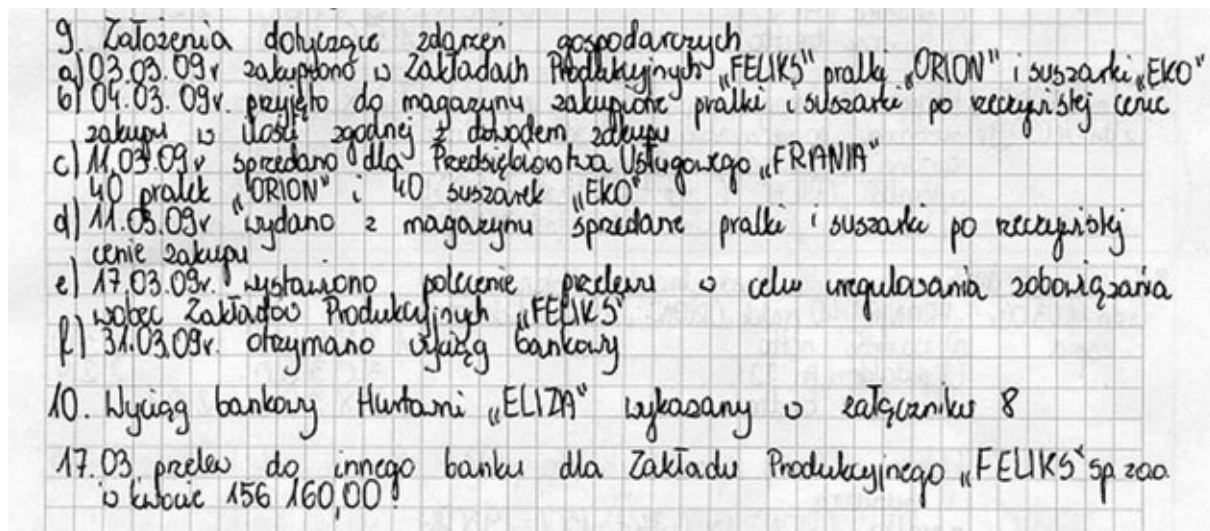 9. Założenia dotyczące zdarzeń gospodarczych
a) 03.03.09r zakupiono w Zakładach Produkcyjnych „FELIKS" pralki „ORION" i suszarki „EKO"
b) 04.03.09r. przyjęto do magazynu zakupione pralki i suszarki po rzeczywistej cenie
zakupu w ilości zgodnej z dowodem zakupu
c) 11.03.09r sprzedano dla Przedsiębiorstwa Usługowego „FRANIA"
40 pralek „ORION" i 40 suszarek „EKO"
d) 11.03.09r wydano z magazynu sprzedane pralki i suszarki po rzeczywistej
cenie zakupu
e) 17.03.09r. wystawiono polecenie przelewu w celu uregulowania zobowiązania
wobec Zakładów Produkcyjnych „FELIKS"
f) 31.03.09r. otrzymano wyciąg bankowy
10. Wyciąg bankowy Hurtowni „ELIZA" wykazany w załączniku 8
17.03 przelew do innego banku dla Zakładu Produkcyjnego „FELIKS" Sp. zoo.
w kwocie 156 160,00